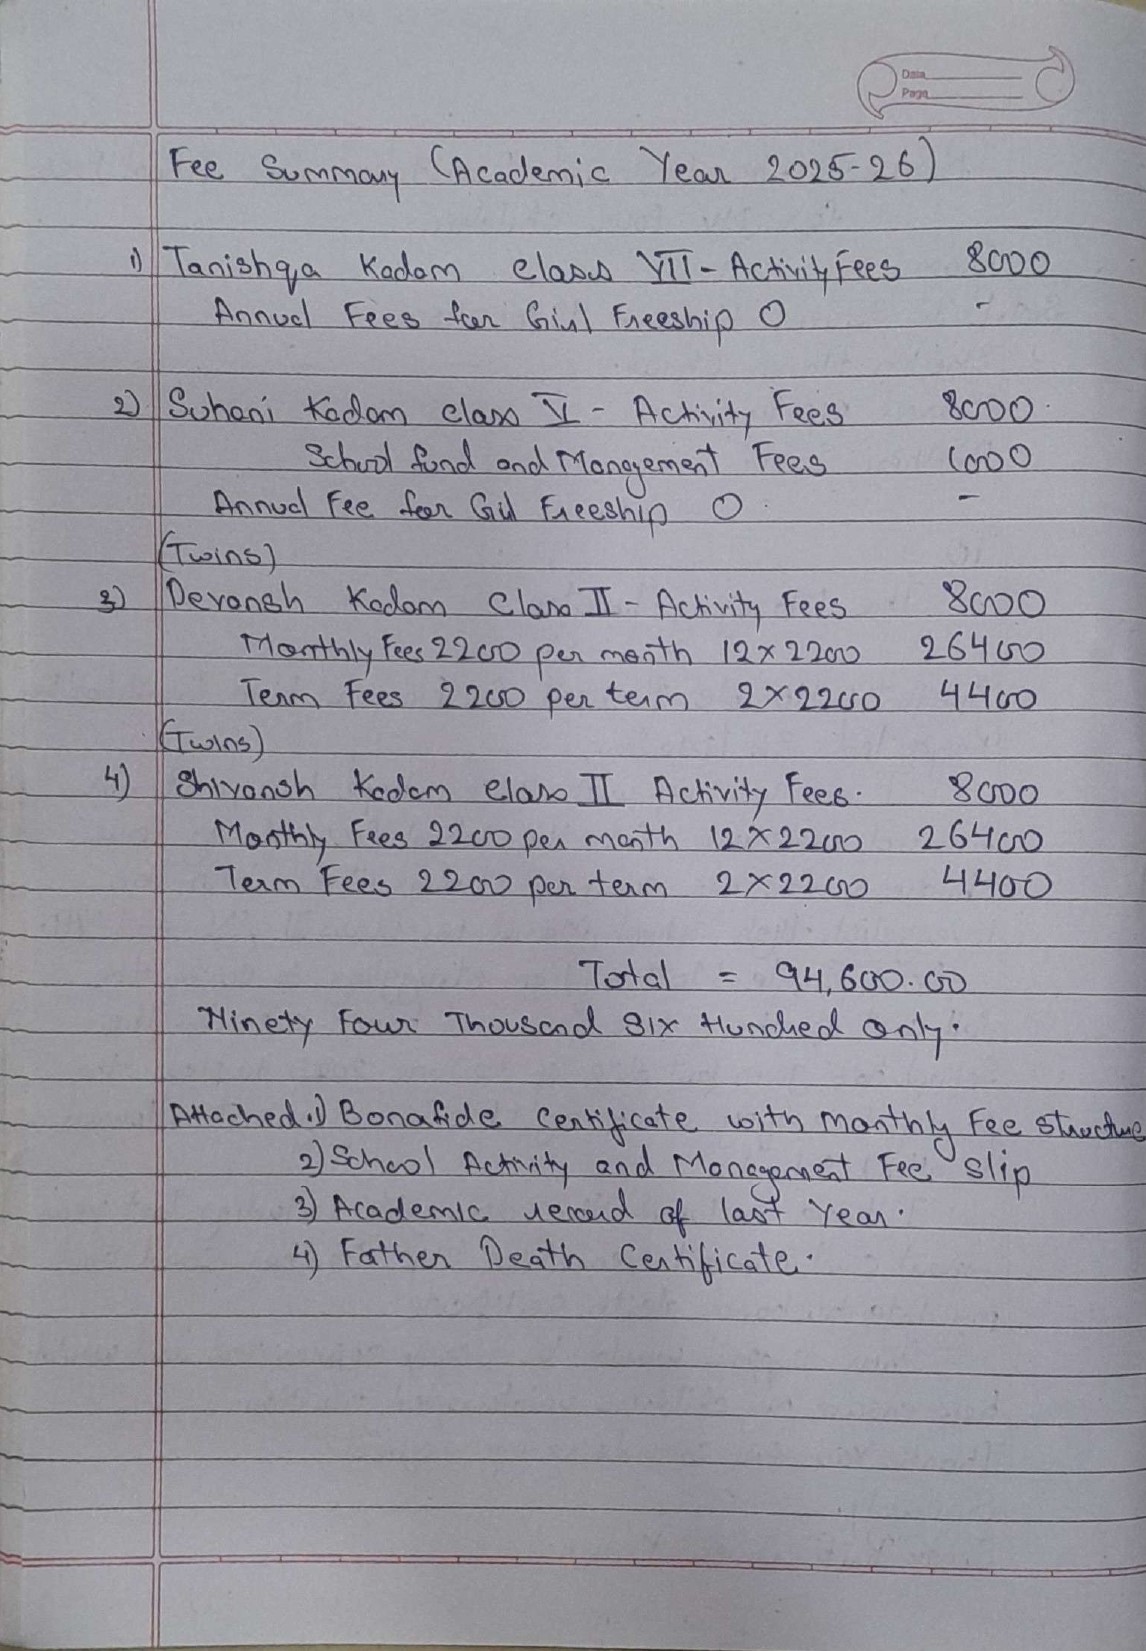 Date
Page
Fee Summary (Academic Year 2025-26)
1) Tanishqa Kadam class VII - Activity Fees 8000
Annual Fees for Girl Freeship 0 -
2) Suhani Kadam class V - Activity Fees 8000
School fund and Management Fees 1000
Annual Fee for Girl Freeship 0 -
(Twins)
3) Devansh Kadam Class II - Activity Fees 8000
Monthly Fees 2200 per month 12 x 2200 26400
Term Fees 2200 per term 2 x 2200 4400
(Twins)
4) Shivansh Kadam class II Activity Fees. 8000
Monthly Fees 2200 per month 12 x 2200 26400
Term Fees 2200 per term 2 x 2200 4400
Total = 94,600.00
Ninety Four Thousand Six Hundred only.
Attached. 1) Bonafide Certificate with monthly Fee structure
2) School Activity and Management Fee slip
3) Academic record of last Year.
4) Father Death Certificate.